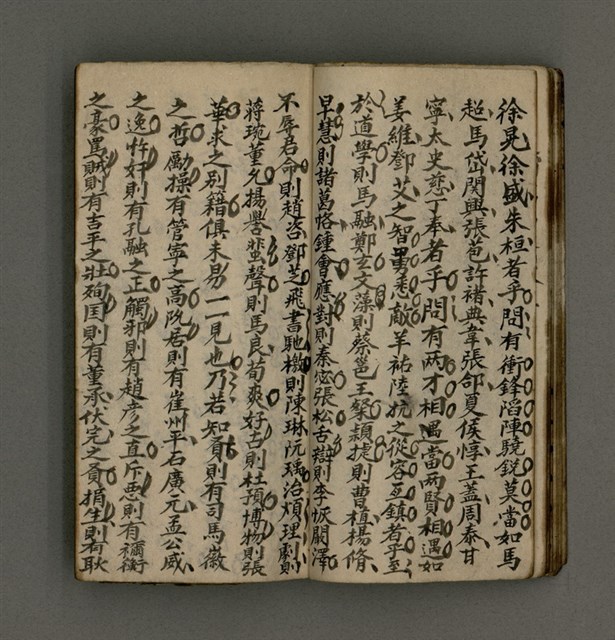 徐晃徐盛朱桓者乎問有衝鋒蹈陣驍銳莫當如馬
超馬岱関興張苞許褚典韋張郃夏侯惇王蓋周泰甘
寧太史慈丁奉者乎問有两才相遇當两賢相遇如
姜維鄧艾之智勇悉敵羊祜陸抗之從容互鎮者乎至
於道學則馬融鄭玄文藻則蔡邕王粲頴捷則曹植楊脩
早慧則諸葛恪鍾會應對則秦宓張松舌辯則李恢闞澤
不辱君命則趙咨鄧芝飛書馳檄則陳琳阮瑀治煩理劇則
蔣琬董允揚譽蜚聲則馬良荀爽好古則杜預博物則張
華求之别籍俱未易一一見也乃若知貟則有司馬徽
之哲勵操有管寧之高隐居則有崔州平石廣元孟公威
之逸忤奸則有孔融之正觸邪則有趙彦之直斥惡則有禰衡
之豪罵賊則有吉平之壯殉国則有董承伏完之貟捐生則有耿